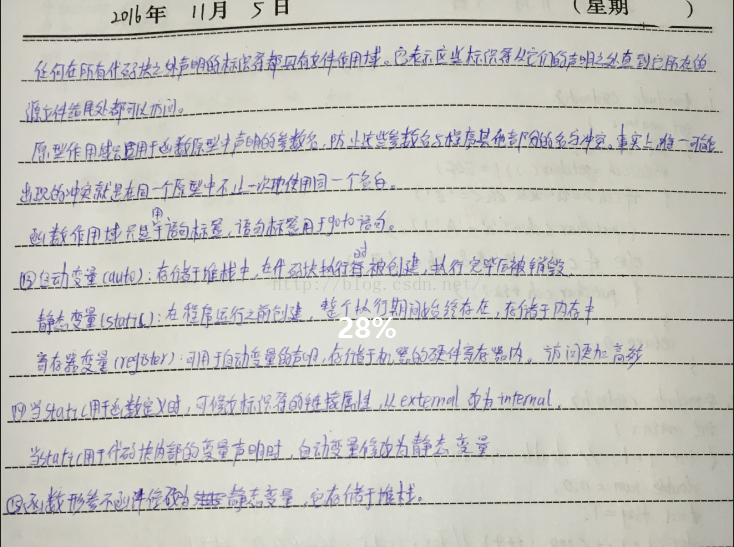 2016年 11月 5日 (星期 )
任何在所有代码块之外声明的标识符都具有文件作用域。它表示这些标识符从它们的声明之处直到它所在的
源文件结尾处都可以访问。
原型作用域只适用于函数原型中声明的参数名，防止这些参数名与程序其他部分的名字冲突。事实上唯一可能
出现的冲突就是在同一个原型中不止一次地使用同一个名字。
函数作用域只适用于语句标签，语句标签用于goto语句。
⑬自动变量(auto)：存储于堆栈中，在代码块执行时被创建，执行完毕后被销毁
http://blog.csdn.net/
静态变量(static)：在程序运行之前创建，整个执行期间始终存在，存储于内存中
28%
寄存器变量(register)：可用于自动变量的声明，存储于机器的硬件寄存器内。访问更加高效
⑭当static用于函数定义时，可修改标识符的链接属性，从external改为internal.
当static用于代码块内部的变量声明时，自动变量修改为静态变量
⑮函数形参不允许修改为静态变量，它存储于堆栈。